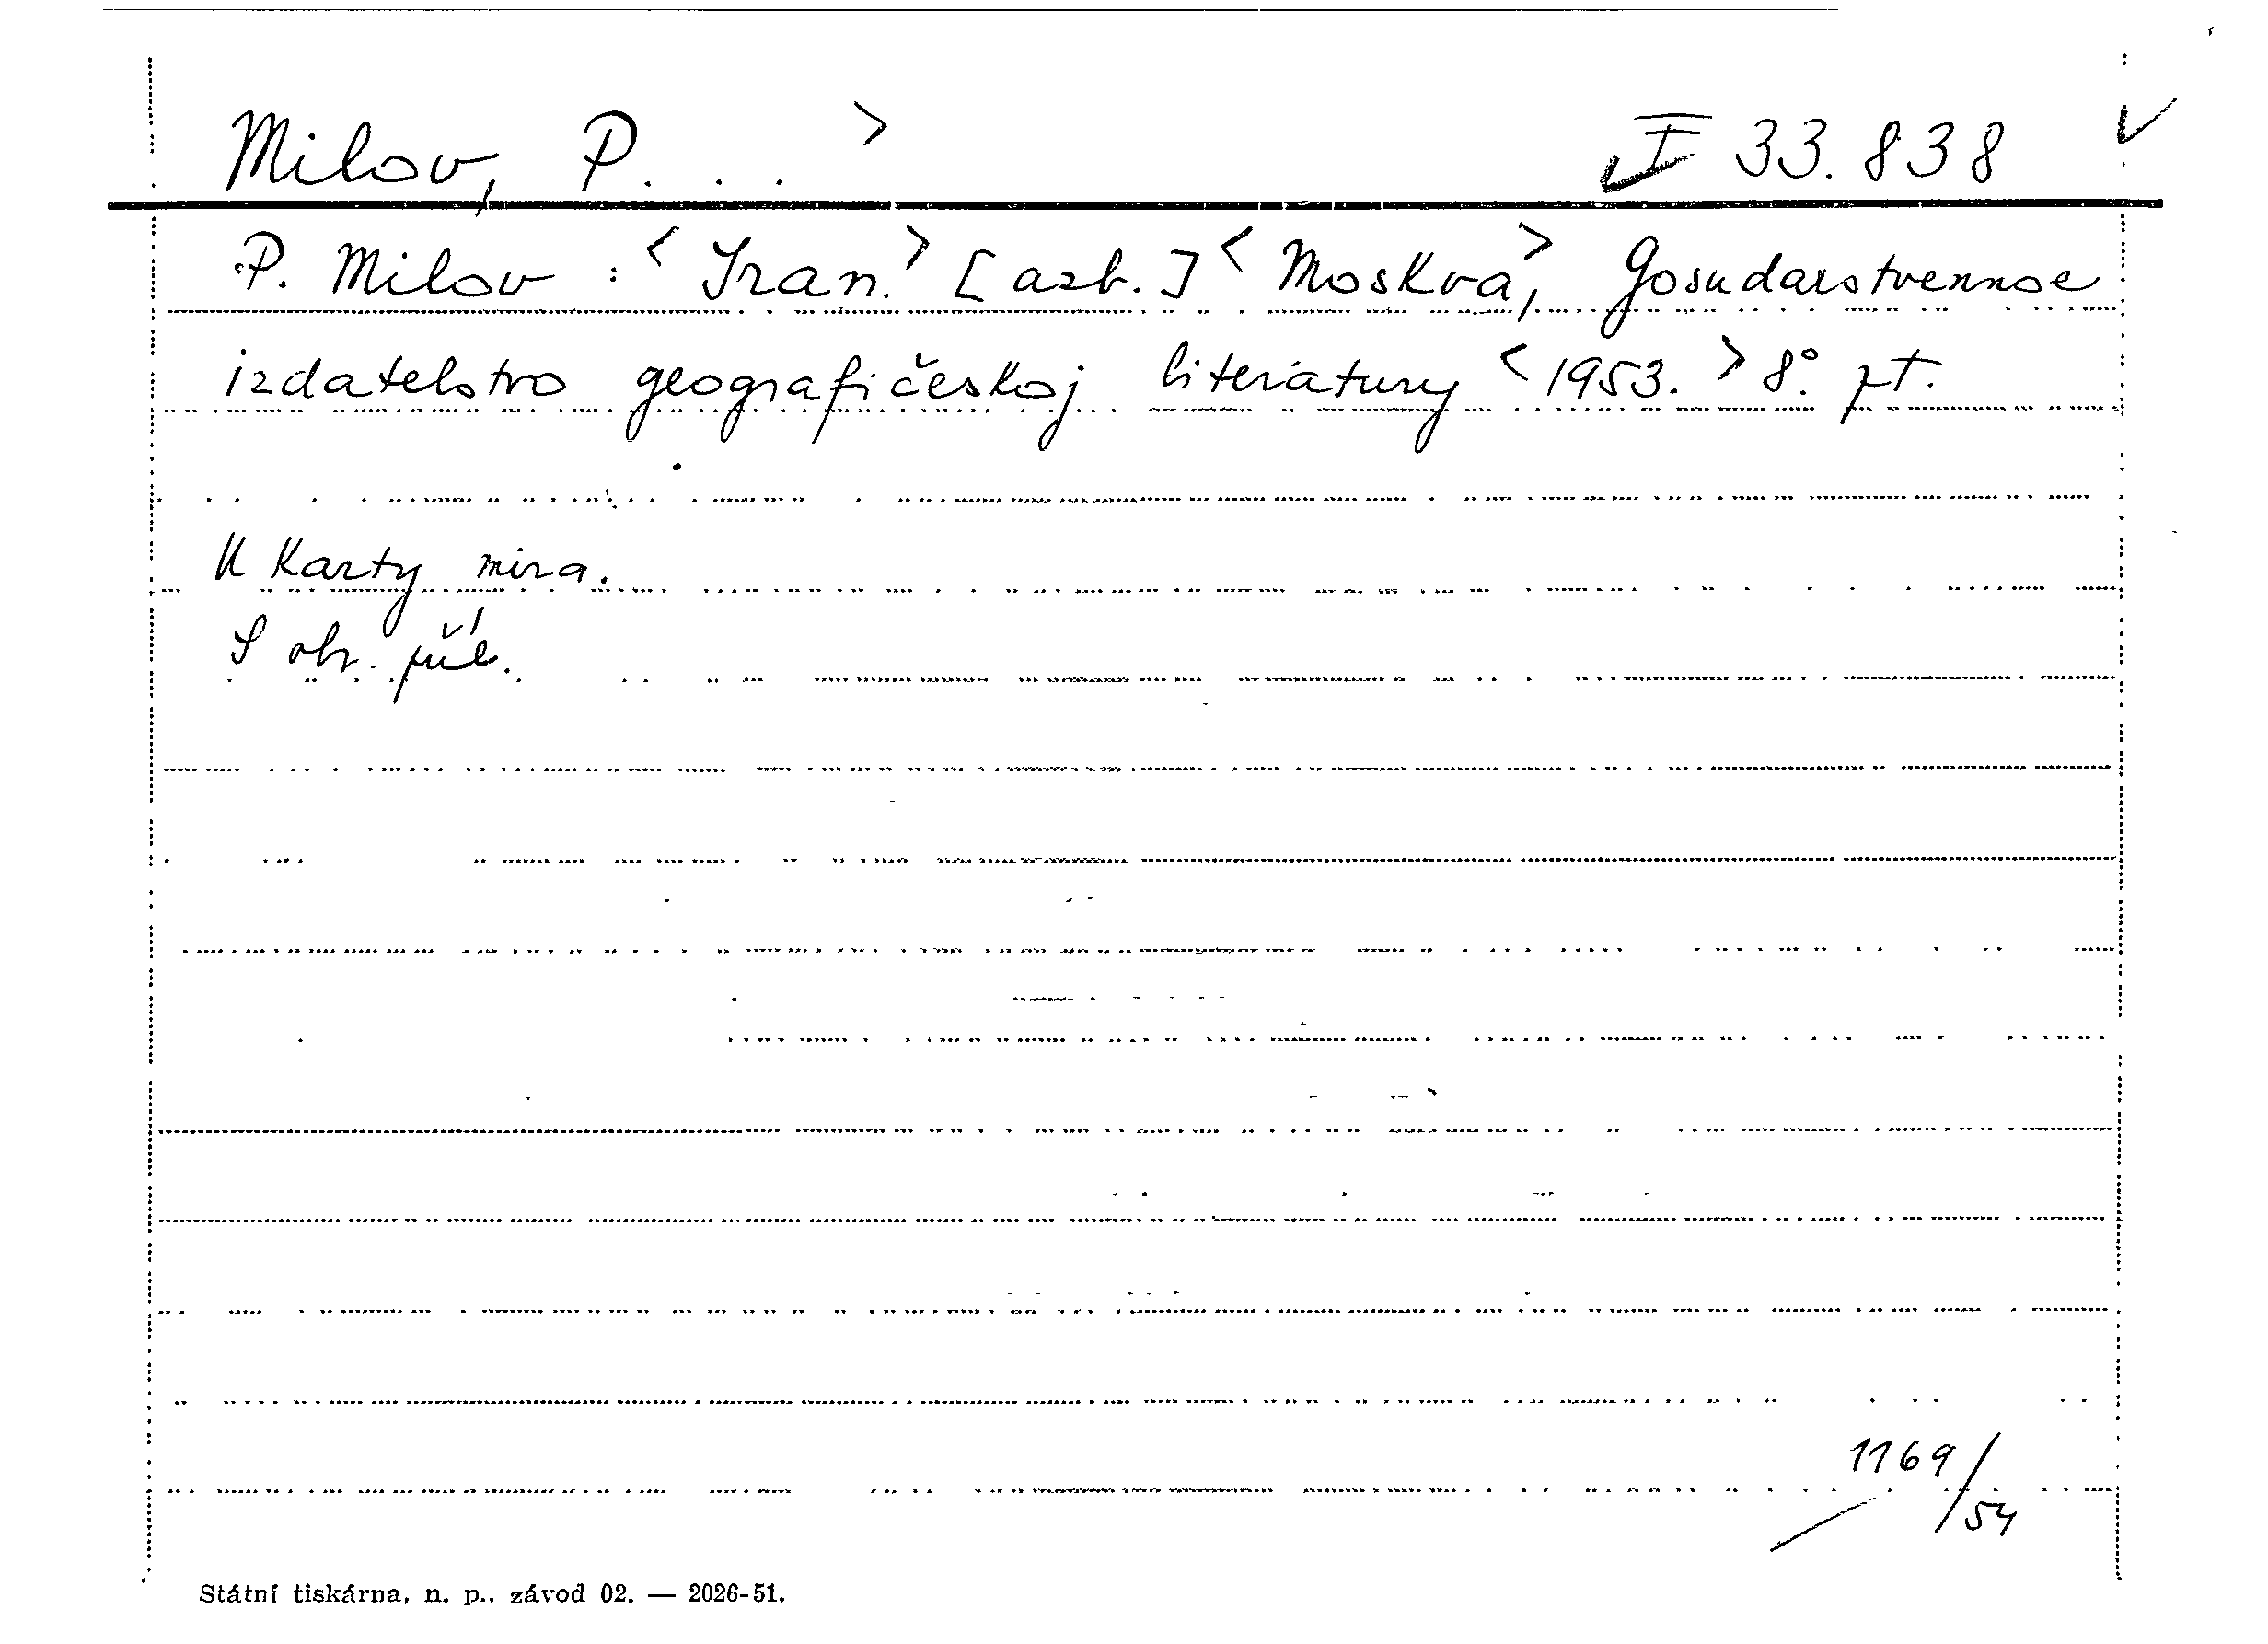 Milov, P. . . > I 33.838
P. Milov : <Iran.> [azb.] <Moskva,> Gosudarstvennoe
izdatelstvo geografičeskoj literatury <1953.> 8°. pt.
U karty mira.
S obr. příl.
1169/54
Státní tiskárna, n. p., závod 02. — 2026-51.